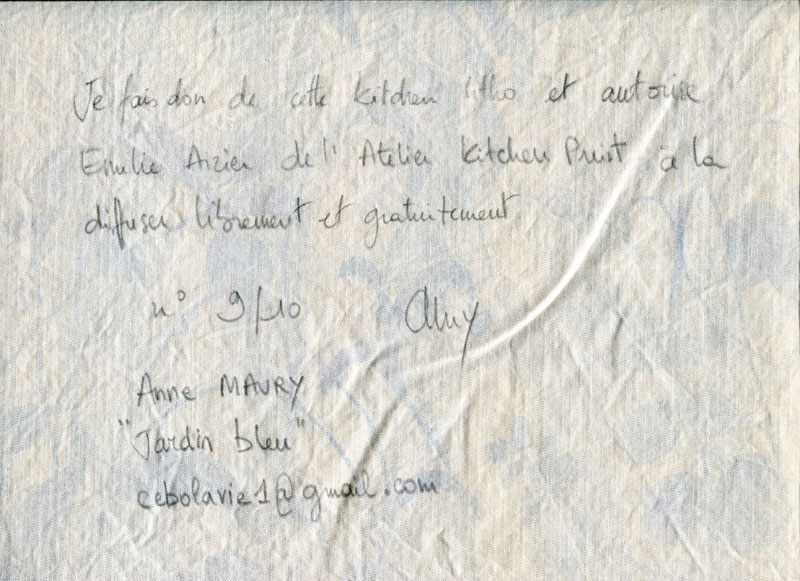 Je fais don de cette kitchen litho et autorise
Emilie Aizier de l'Atelier Kitchen Print à la
diffuser librement et gratuitement
n° 9/10
Anne MAURY
"Jardin bleu"
cebolavie1@gmail.com